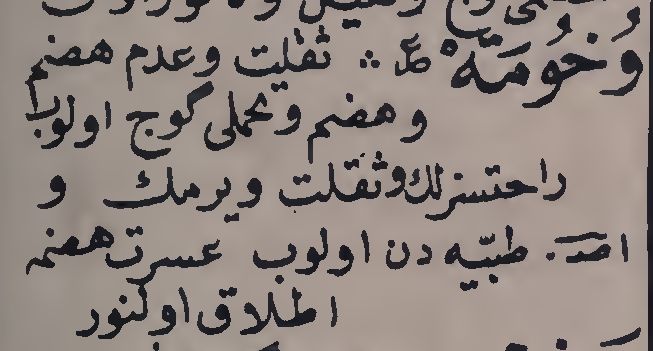 وخومه ع ؞ ثقلت وعدم هضم
و هضم و تحملی گوج اولوب
راحتسزلك وثقلت ویرمك و
امد. طبیه دن اولوب عسرت هضمه
اطلاق اولنور